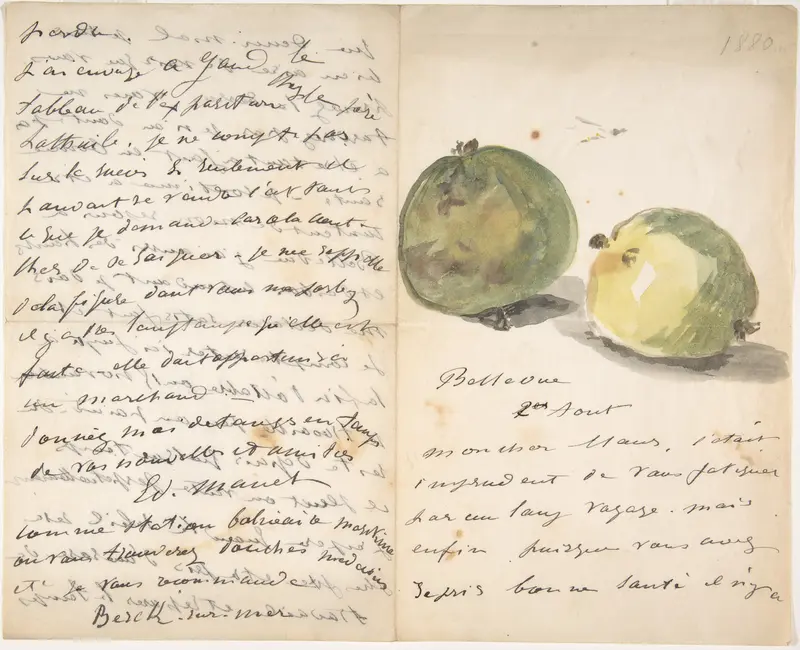 perdu.
J'ai envoyé à Gand le
tableau de l'exposition père
Lathuile, je ne compte pas
sur le succès si seulement il
pouvait se vendre c'est tout
ce que je demande
de se saigner - je me rappelle
de la figure dont vous me parlez
il y a très longtemps qu'elle est
faite elle doit appartenir à
un marchand
donnez moi de temps en temps
de vos nouvelles et amitiés
Ed. Manet
comme station balnéaire maritime
ou vous trouverez douches médecins
et je vous recommande
Berck-sur-mer
1880
Bellevue
2 Aout
mon cher Maus, c'était
imprudent de vous fatiguer
par un long voyage. mais
enfin puisque vous avez
repris bonne santé il n'y a